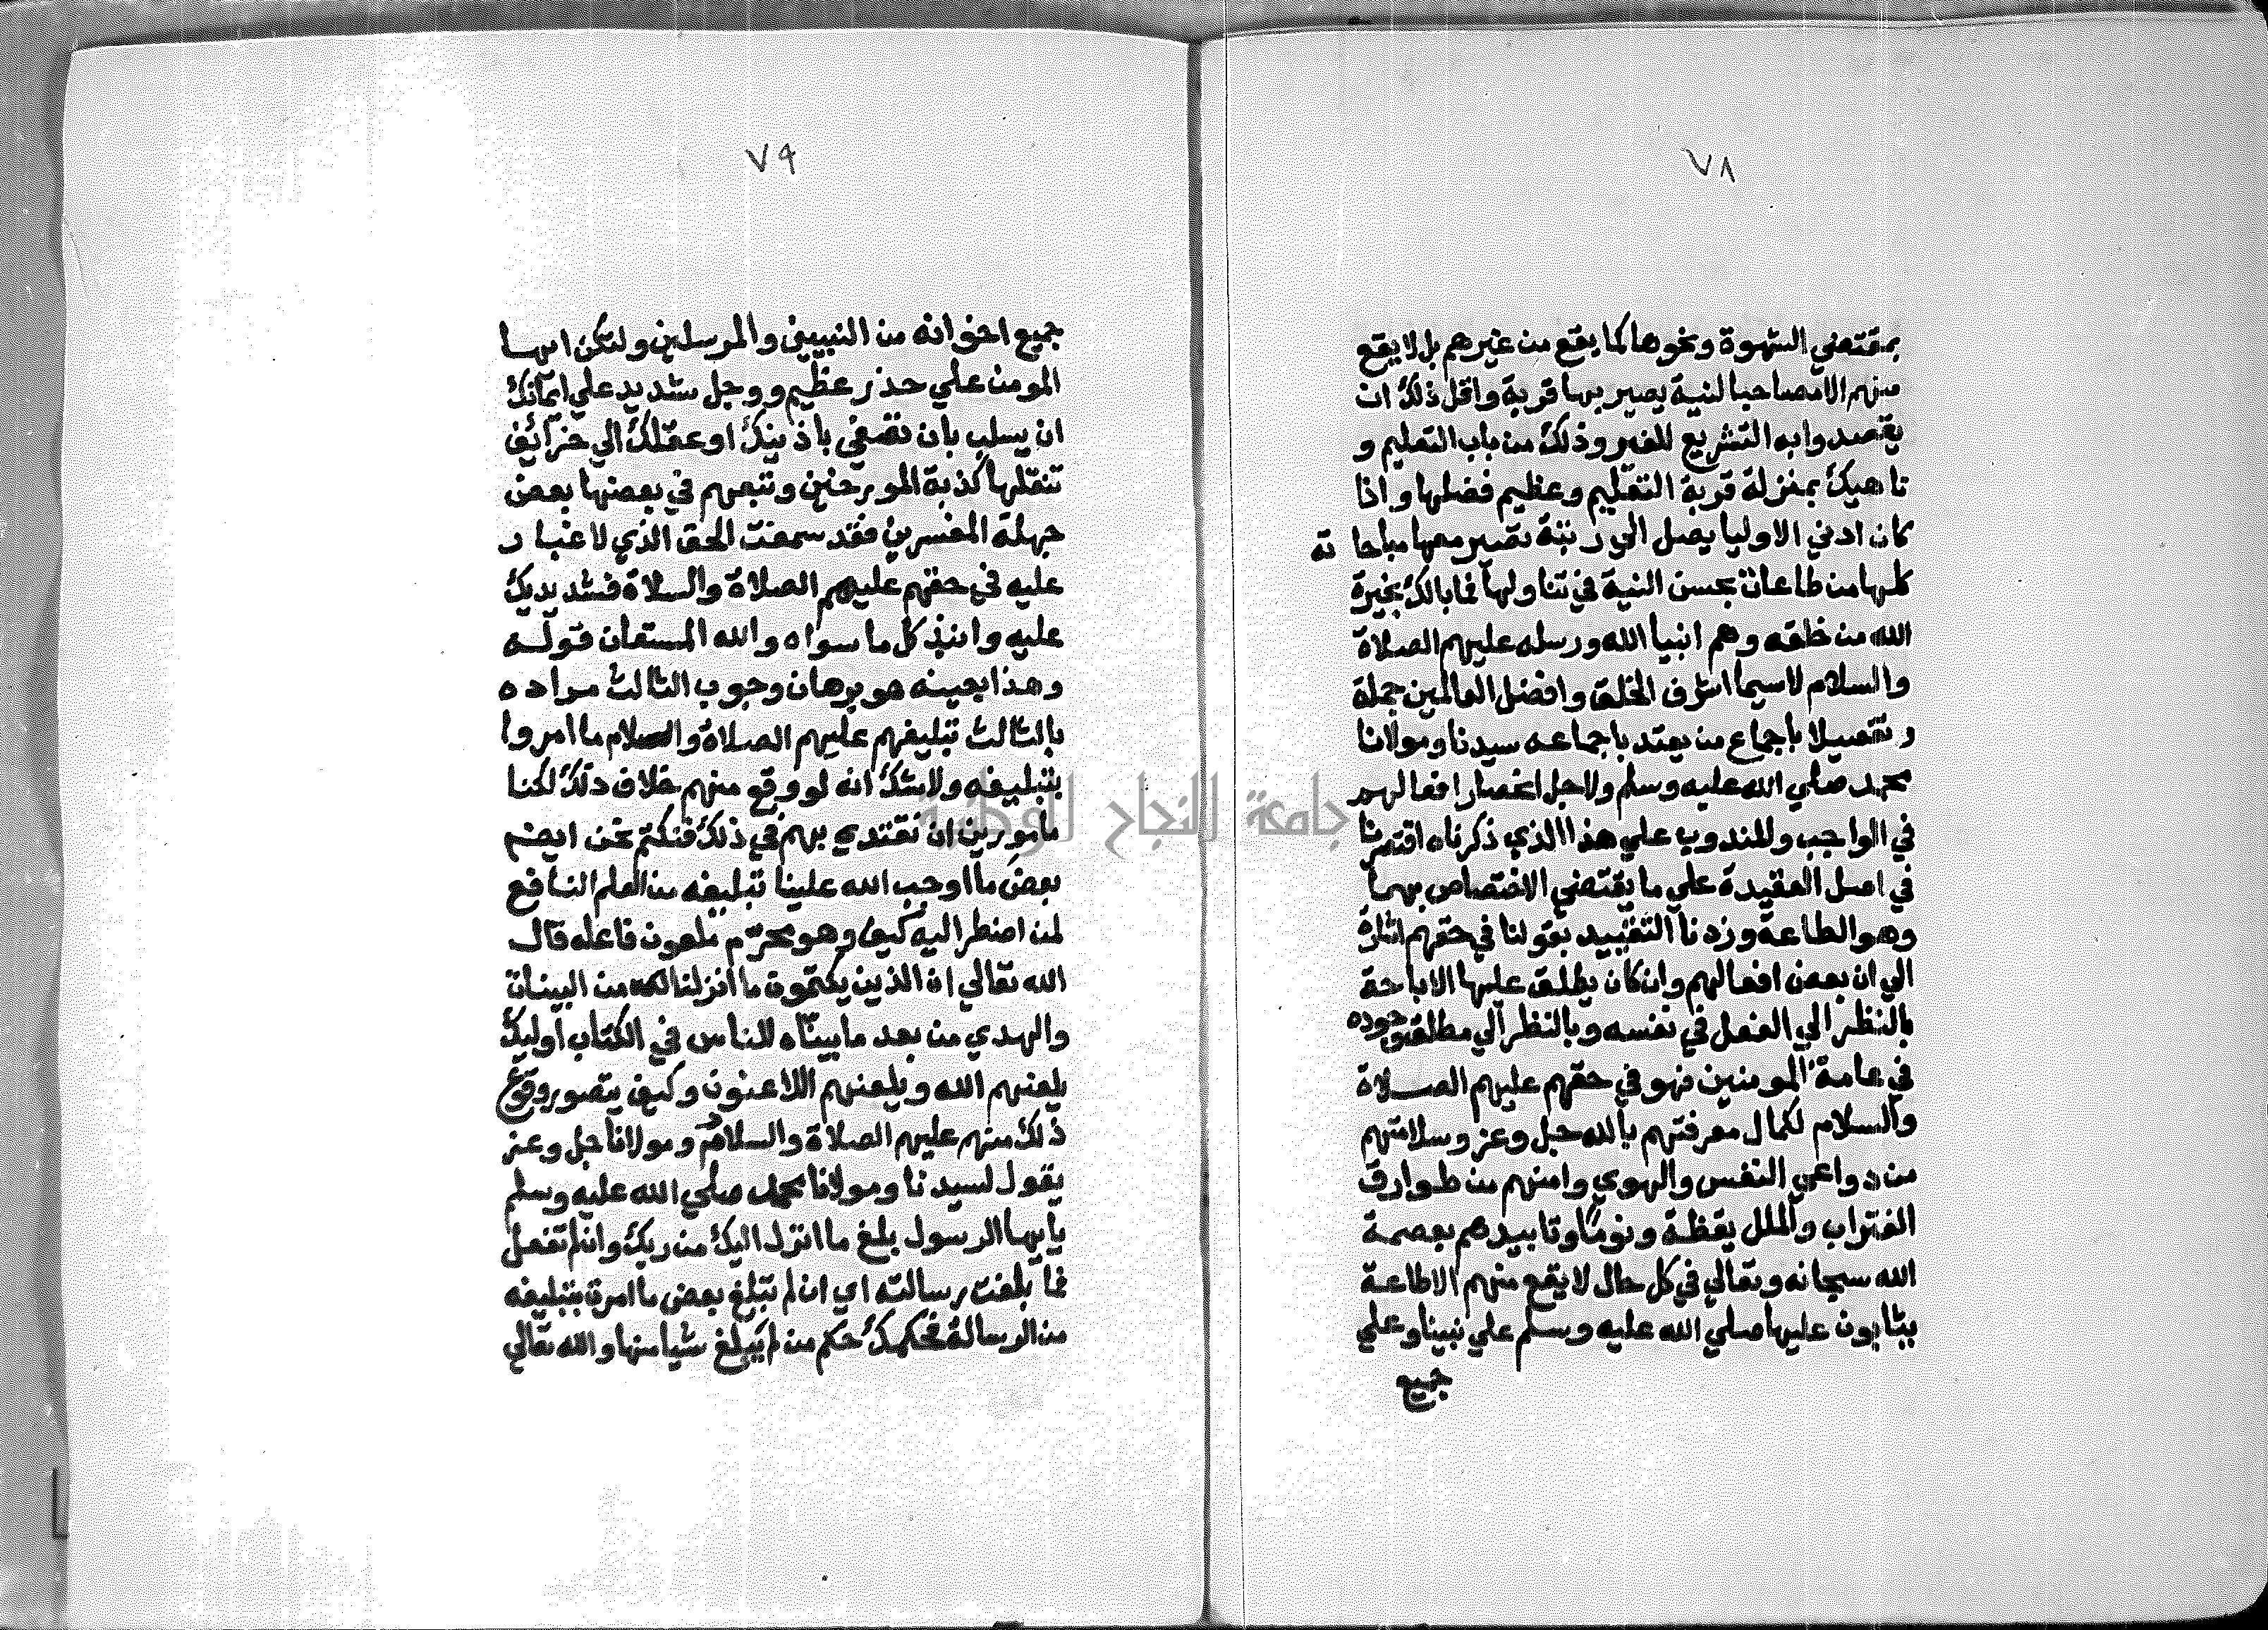 ٧٨
بمقتضي الشهوة ونحوها كما يقع من غيرهم بل لا يقع
منهم الا مصاحبا لنية يصير بها قربة واقل ذلك ان
يقصدوا به التشريع للغير وذلك من باب التعليم و
ناهيك بمنزلة قربة التعليم وعظيم فضلها واذا
كان ادني الاوليا يصل الي رتبة تصير معها مباحا ته
كلها من طاعات بحسن النية في تناولها فما بالك بخيرة
الله من خلقه وهم انبيا الله ورسله عليهم الصلاة
والسلام لا سيما اشرف الخلق وافضل العالمين جملة
و تفصيلا باجماع من يعتد باجماعه سيدنا ومولانا
محمد صلي الله عليه وسلم ولاجل انحصار افعالهم
في الواجب والمندوب علي هذا الذي ذكرناه اقتصرنا
في اصل العقيدة علي ما يقتضي الاختصاص بهما
وهو الطاعة وزدنا التقييد بقولنا في حقهم اشارة
الي ان بعض افعالهم وان كان يطلق عليها الاباحة
بالنظر الي الفعل في نفسه وبالنظر الي مطلق وجوده
في عامة المومنين فهو في حقهم عليهم الصلاة
والسلام لكمال معرفتهم بالله جل وعز وسلامتهم
من دواعي النفس والهوي وامنهم من طوارق
الفترات والملل يقظة ونوما وتاييدهم بعصمة
الله سبحانه وتعالي في كل حال لا يقع منهم الا طاعة
يثابون عليها صلي الله عليه وسلم علي نبينا وعلي
جميع
٧٩
جميع اخوانه من النبيين والمرسلين ولتكن ايها
المومن علي حذر عظيم ووجل شديد علي ايمانك
ان يسلب بان تصغي باذنك او عقلك الي خرائف
تنقلها كذبة المورخين وتبعهم في بعضها بعض
جهلة المفسرين فقد سمعت الحق الذي لا غبار
عليه في حقهم عليهم الصلاة والسلاة فشد يديك
عليه وانبذ كل ما سواه والله المستعان قوله
وهذا بعينه هو برهان وجوب الثالث مراده
بالثالث تبليغهم عليهم الصلاة والسلام ما امروا
بتبليغه ولا شك انه لو وقع منهم خلاف ذلك لكنا
مامورين ان نقتدي بهم في ذلك فنكتم نحن ايضم
بعض ما اوجب الله علينا تبليغه من العلم النافع
لمن اضطر اليه كيف وهو محرم ملعون فاعله قال
الله تعالي ان الذين يكتمون ما انزلنا من البينات
والهدي من بعد ما بيناه للناس في الكتاب اوليك
يلعنهم الله ويلعنهم اللاعنون وكيف يتصور وقوع
ذلك منهم عليهم الصلاة والسلام ومولانا جل وعز
يقول لسيدنا ومولانا محمد صلي الله عليه وسلم
يايها الرسول بلغ ما انزل اليك من ربك وان لم تفعل
فما بلغت رسالته اي ان لم تبلغ بعض ما امرت بتبليغه
من الرسالة فحكمك حكم من لم يبلغ شيا منها والله تعالي
جامعة النجاح الوطنية